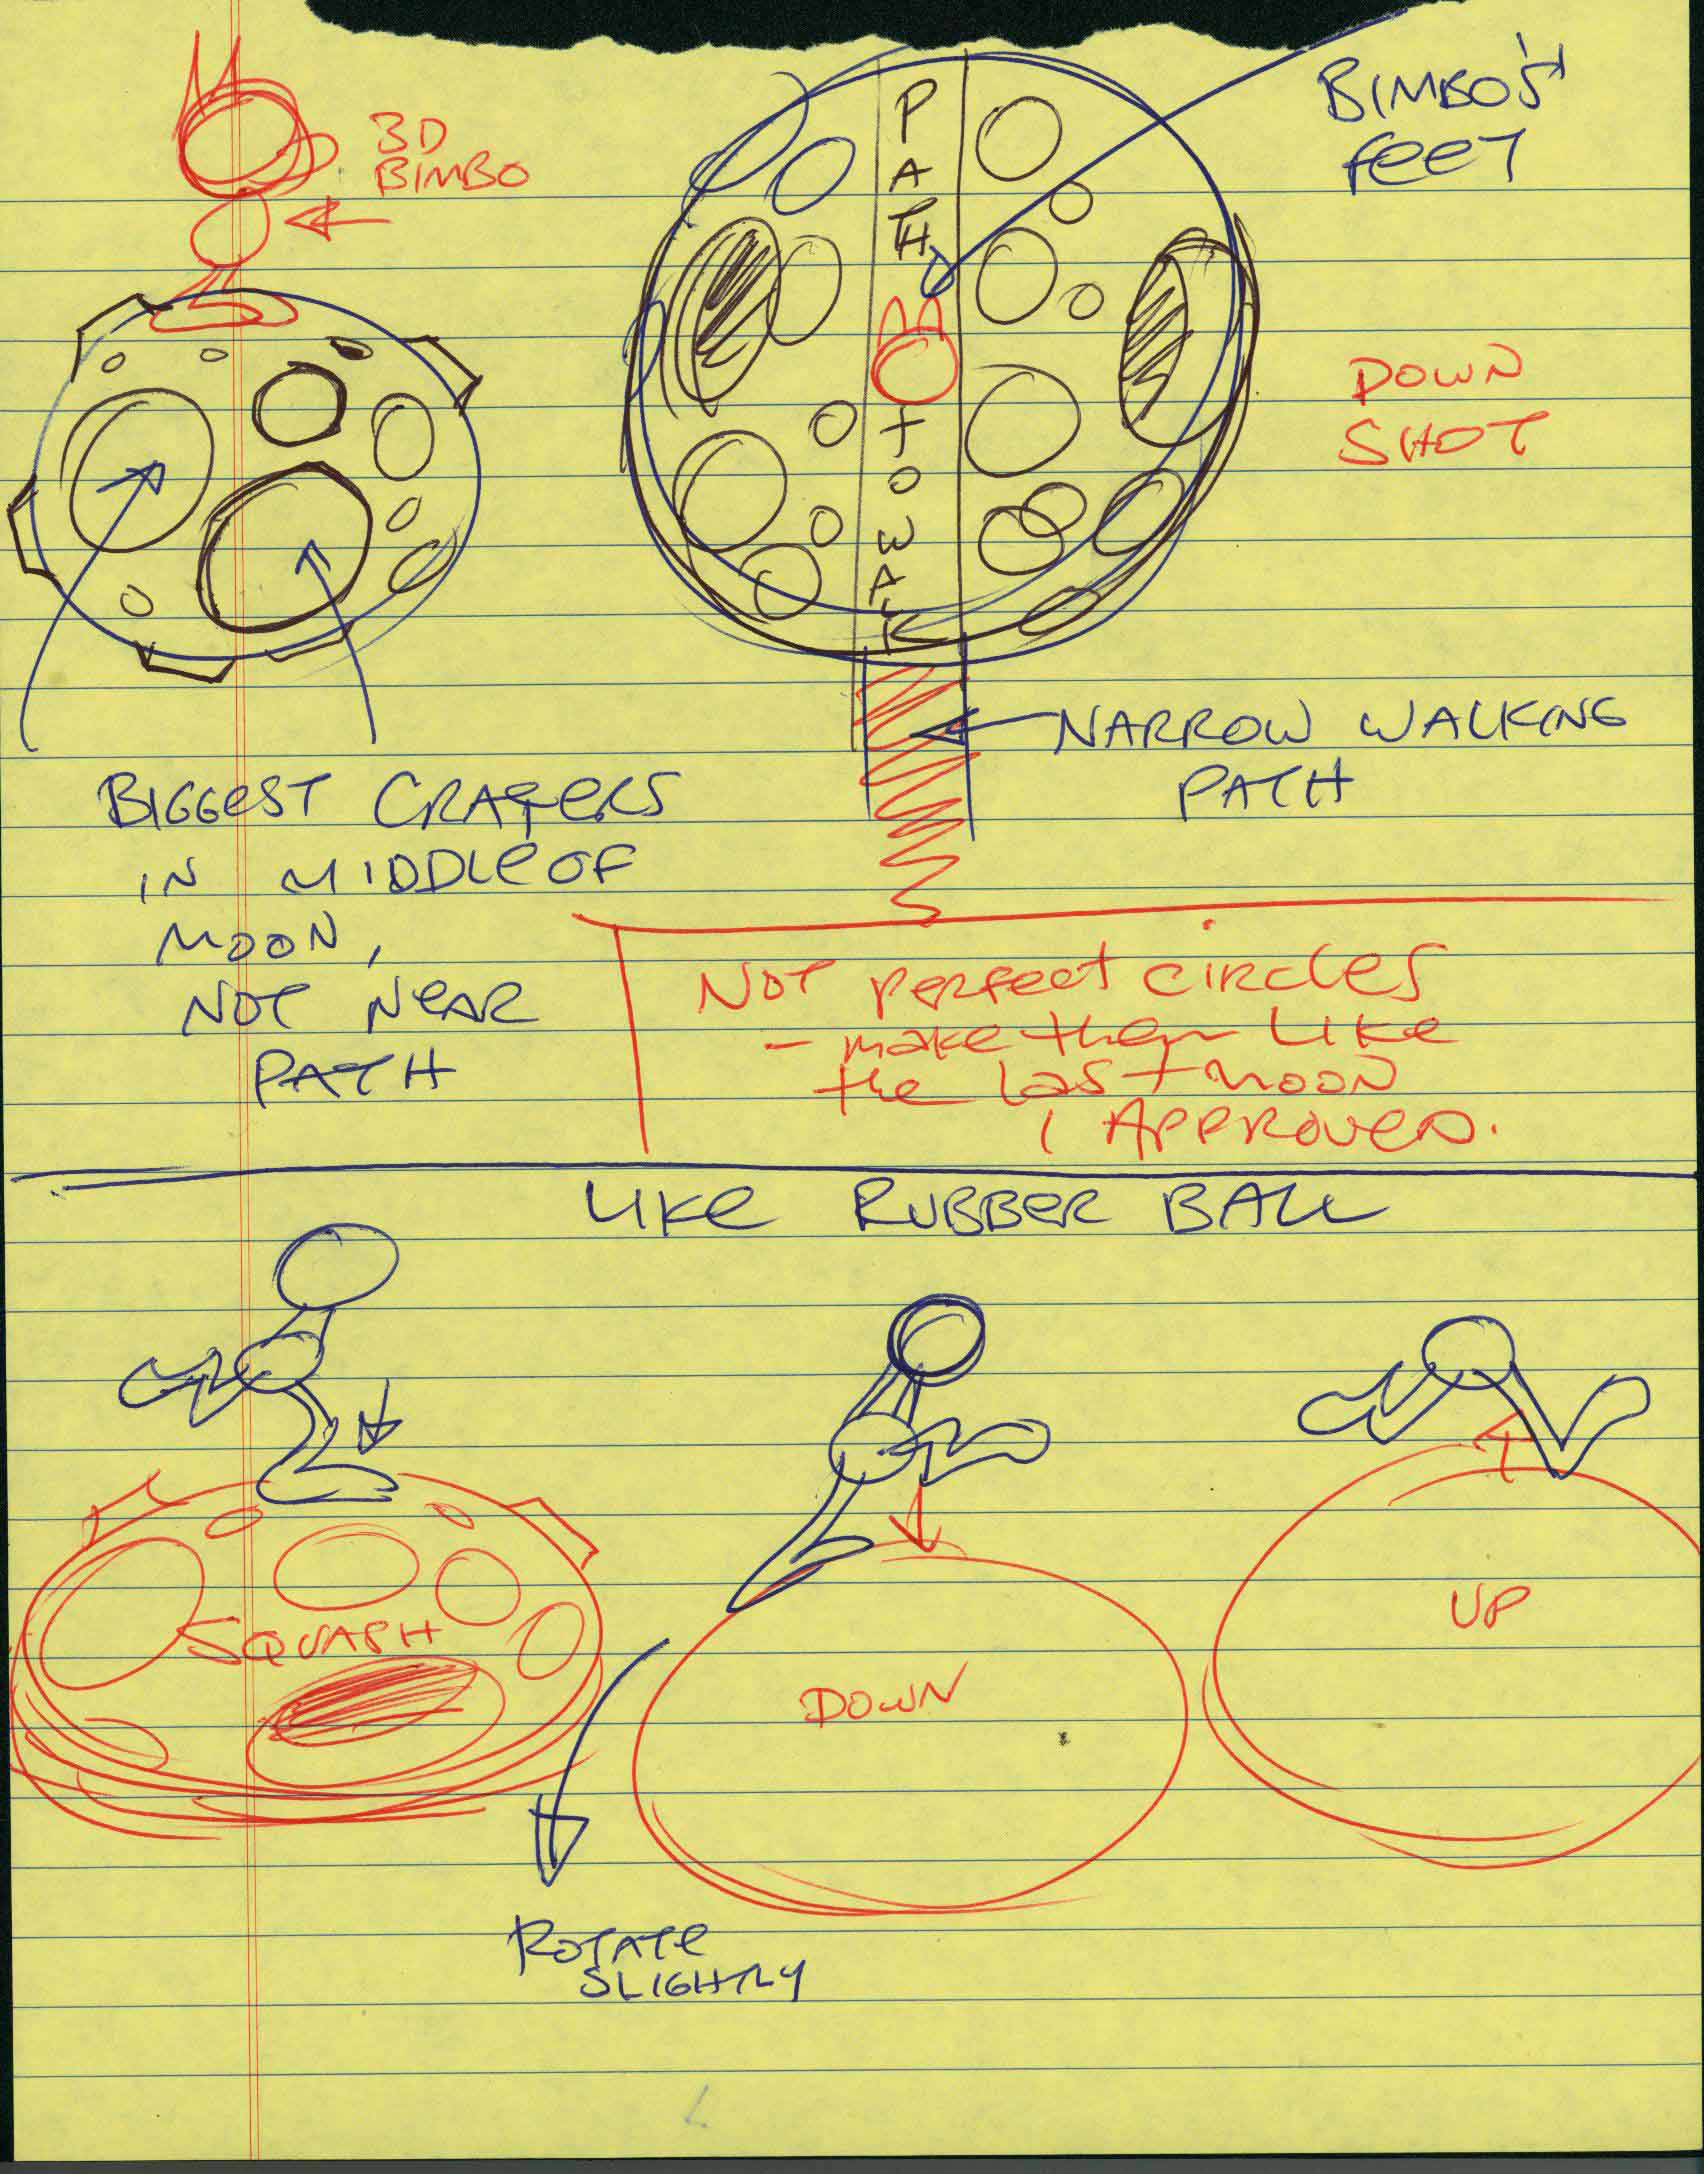 3D
BIMBO
PATH TO WALK
BIMBO'S
FEET
DOWN
SHOT
NARROW WALKING
PATH
BIGGEST CRATERS
IN MIDDLE OF
MOON,
NOT NEAR
PATH
NOT PERFECT CIRCLES
- make them LIKE
the last MOON
I APPROVED.
LIKE RUBBER BALL
SQUASH
DOWN
UP
ROTATE
SLIGHTLY